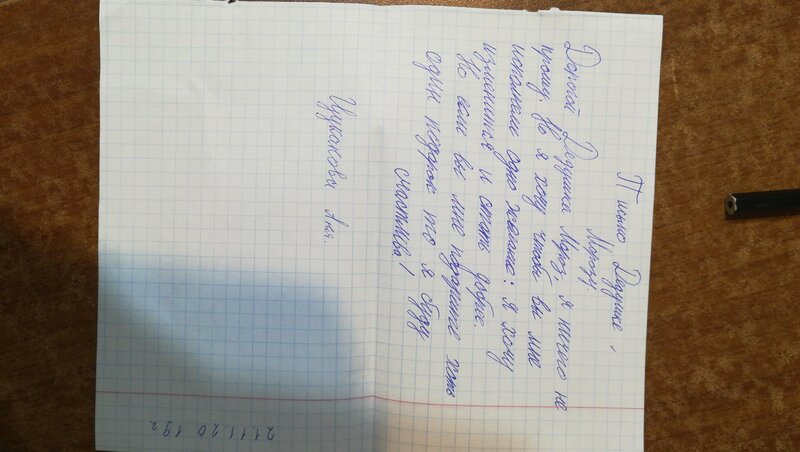 Письмо Дедушке
Морозу
Дорогой Дедушка Мороз, я ничего не
прошу. Но я хочу чтобы вы мне
исполнили одно желание: Я хочу
измениться и стать добрее.
Но если вы мне подарите хоть
один подарок то я буду
счастлива!
Цуканова Аня.
21.11.2019г